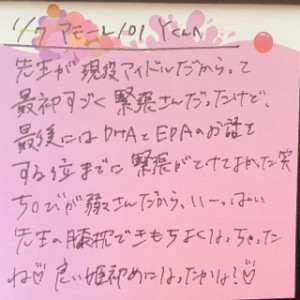 1/7 アモーレ101 Yさん
先生が現役アイドルだからって
最初すごく緊張さんだったけど、
最後にはDHAとEPAのお話を
する位までに緊張がとけてよかった笑
ちびが弱さんだから、いーっぱい
先生の膝枕できもちよくなっちゃった
ね♡ 良い姫初めになったかな?♡